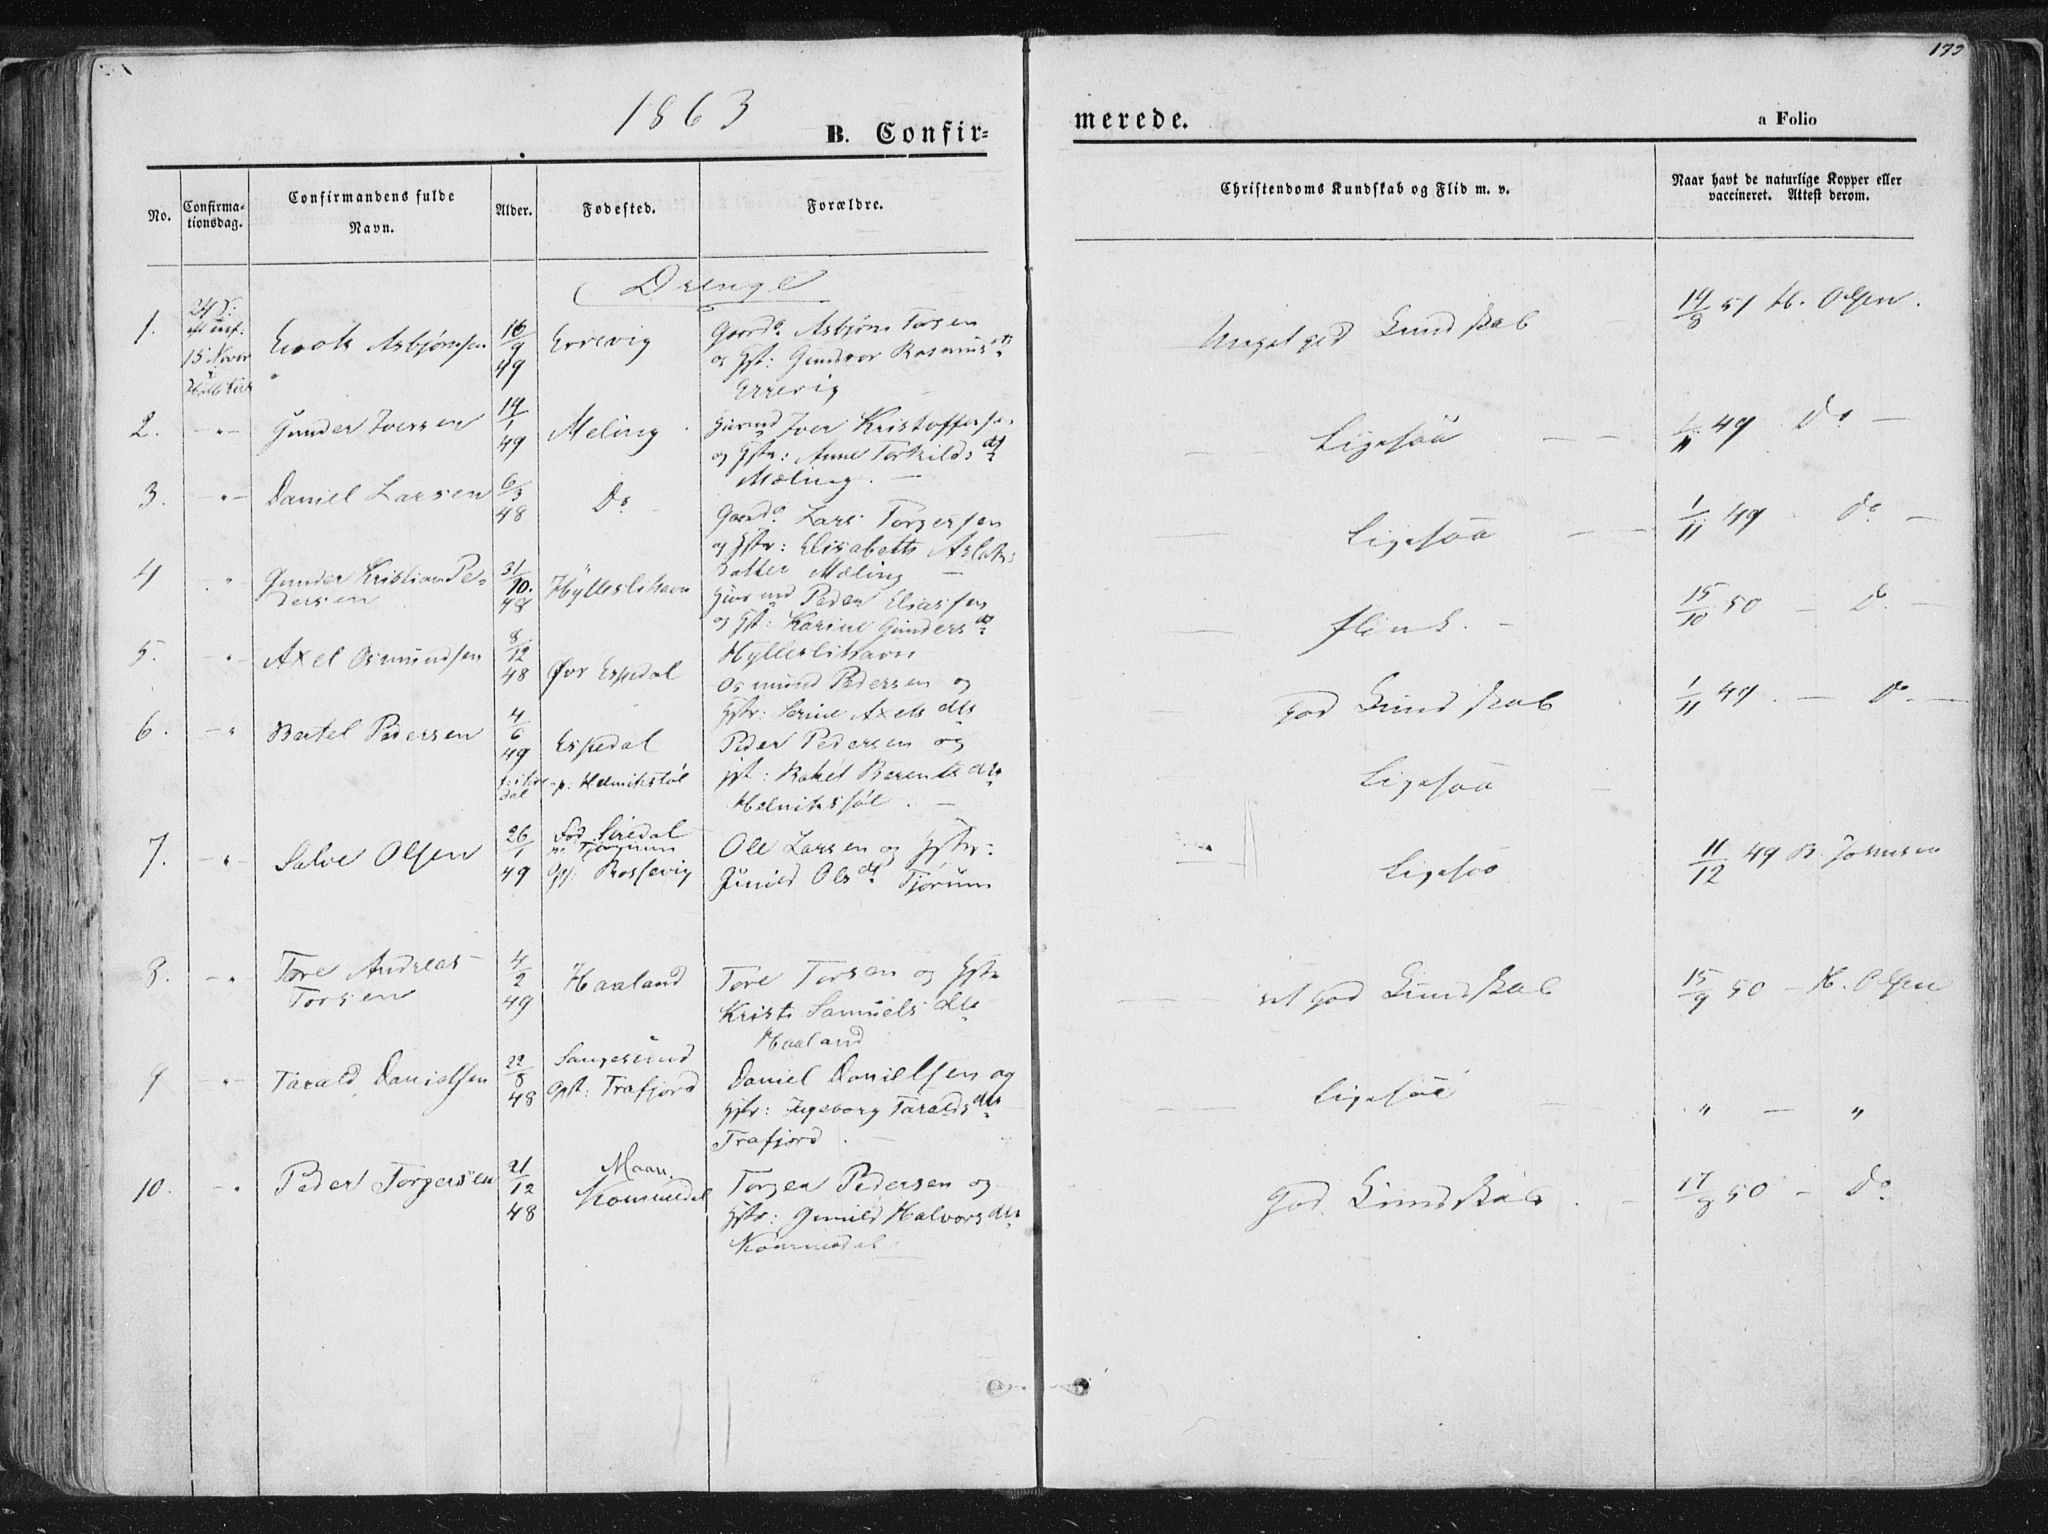 173
1863
B. Confir-
merede.
a Folio
No.
Confirma-
tionsdag.
Confirmandens fulde
Navn.
Alder.
Fødested.
Forældre.
Christendoms Kundskab og Flid m. v.
Naar havt de naturlige Kopper eller
vaccineret. Attest derom.
Drenge
1. Enok Asbjørnsen 16/9 49 Errevig
Gaardr. Asbjørn Torsen
og Hst: Gundvor Rasmusdt
Errevig
Meget god Kundskab
14/8 51 H. Olsen.
15 Novbr
2. -"- Gunder Iversen 14/1 49 Meling
Iver Kristoffersen
og Hstr: Anne Torkildsdt
Mæling.
Ligesaa
49 Do
3. -"- Daniel Larsen 6/3 48 Do
Gaardr. Lars Torgersen
og Hstr: Elisabeth Aslaks
datter Mæling
Ligesaa
1/11 49 - do
4 -"- Gunder Kristian Pe-
dersen 31/10. 48 Hylleslihavn
Peder Eliassen
og Hst: Karine Gundersdt
Hylleslihavn
flink.
15/10 50 - do
5. -"- Axel Osmundsen 8/12 48 Øvr Espedal
Osmund Pedersen og
Hstr: Serine Axelsdtr
God Kundskab
1/11 49. - do
6. -"- Bertel Pedersen 4/6 49 Espedal
p: Helmikstøl
Peder Pedersen og
Hst: Rakel Berentsdtr
Helmikstøl.
Ligesaa
7. -"- Salve Olsen 26/1 49 Fød Siredal
Tjørum
Opf. Rossevig
Ole Larsen og Hstr:
Gunild Olsdt Tjørum
Ligesaa
11/12 49
8. -"- Tore Andreas
Torsen 4/2 49 Haaland
Tore Torsen og Hstr
Kristi Samuelsdtr
Haaland
ret God Kundskab
15/9 50 - H. Olsen
9 -"- Tarald Danielsen 22/8 48 Sangesund
Opst: Trafjord
Daniel Danielsen og
Hstr: Ingeborg Taraldsdtr
Trafjord.
Ligesaa
" - "
10. -" Peder Torgersen 21/12 48 Maan
Kommedal
Torger Pedersen og
Hstr: Gunild Halvorsdtr
Kommedal
God Kundskab.
17/8 50 - do